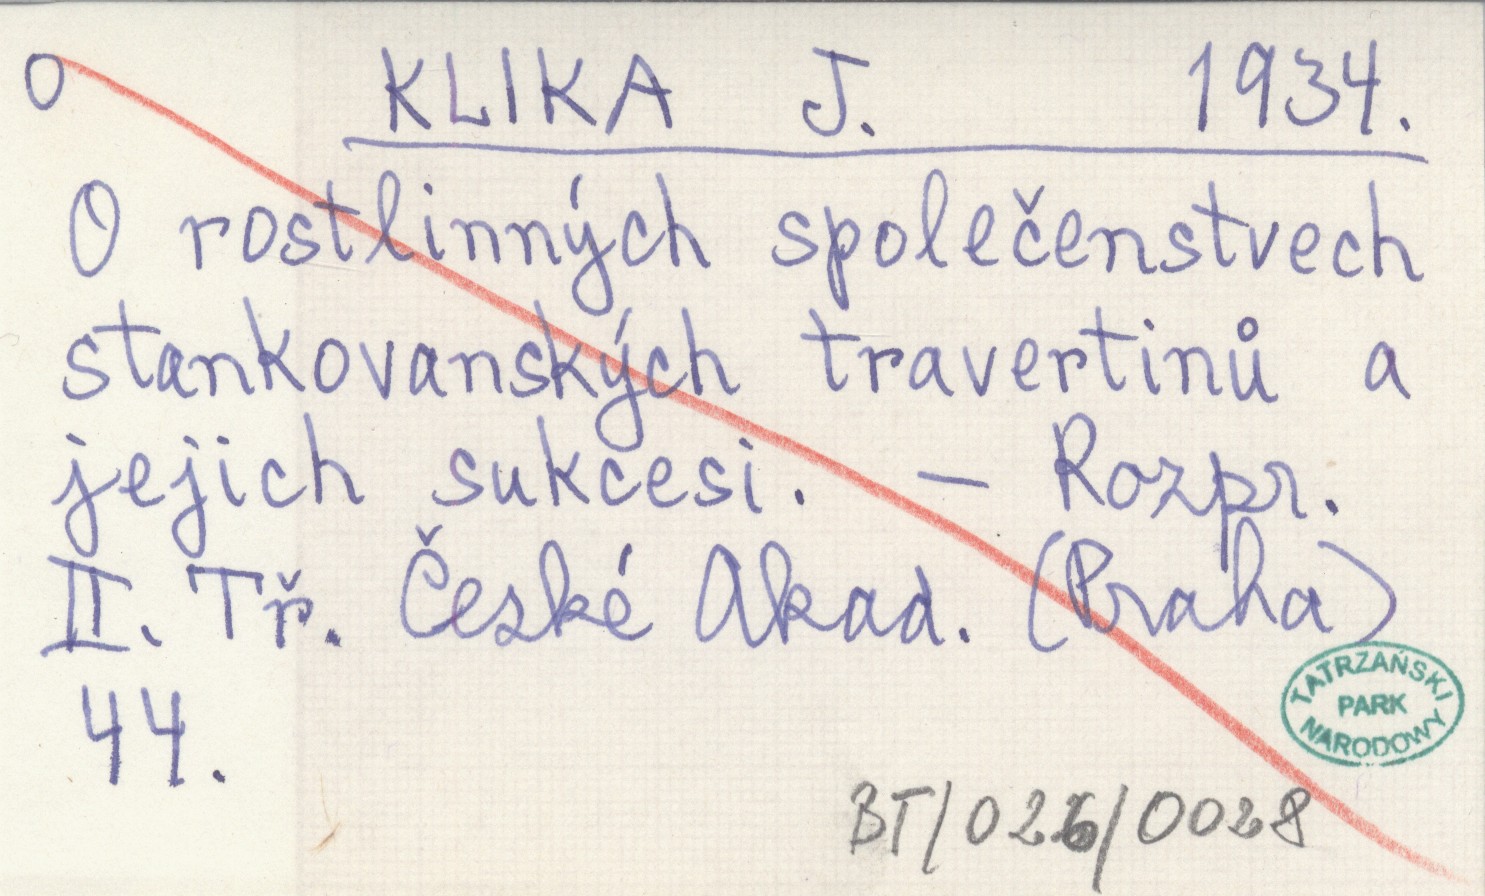 O KLIKA J. 1934.
O rostlinných společenstvech
stankovanských travertinů a
jejich sukcesi. — Rozpr.
II. Tř. České Akad. (Praha)
44.
TATRZAŃSKI
PARK
NARODOWY
BT/026/0028